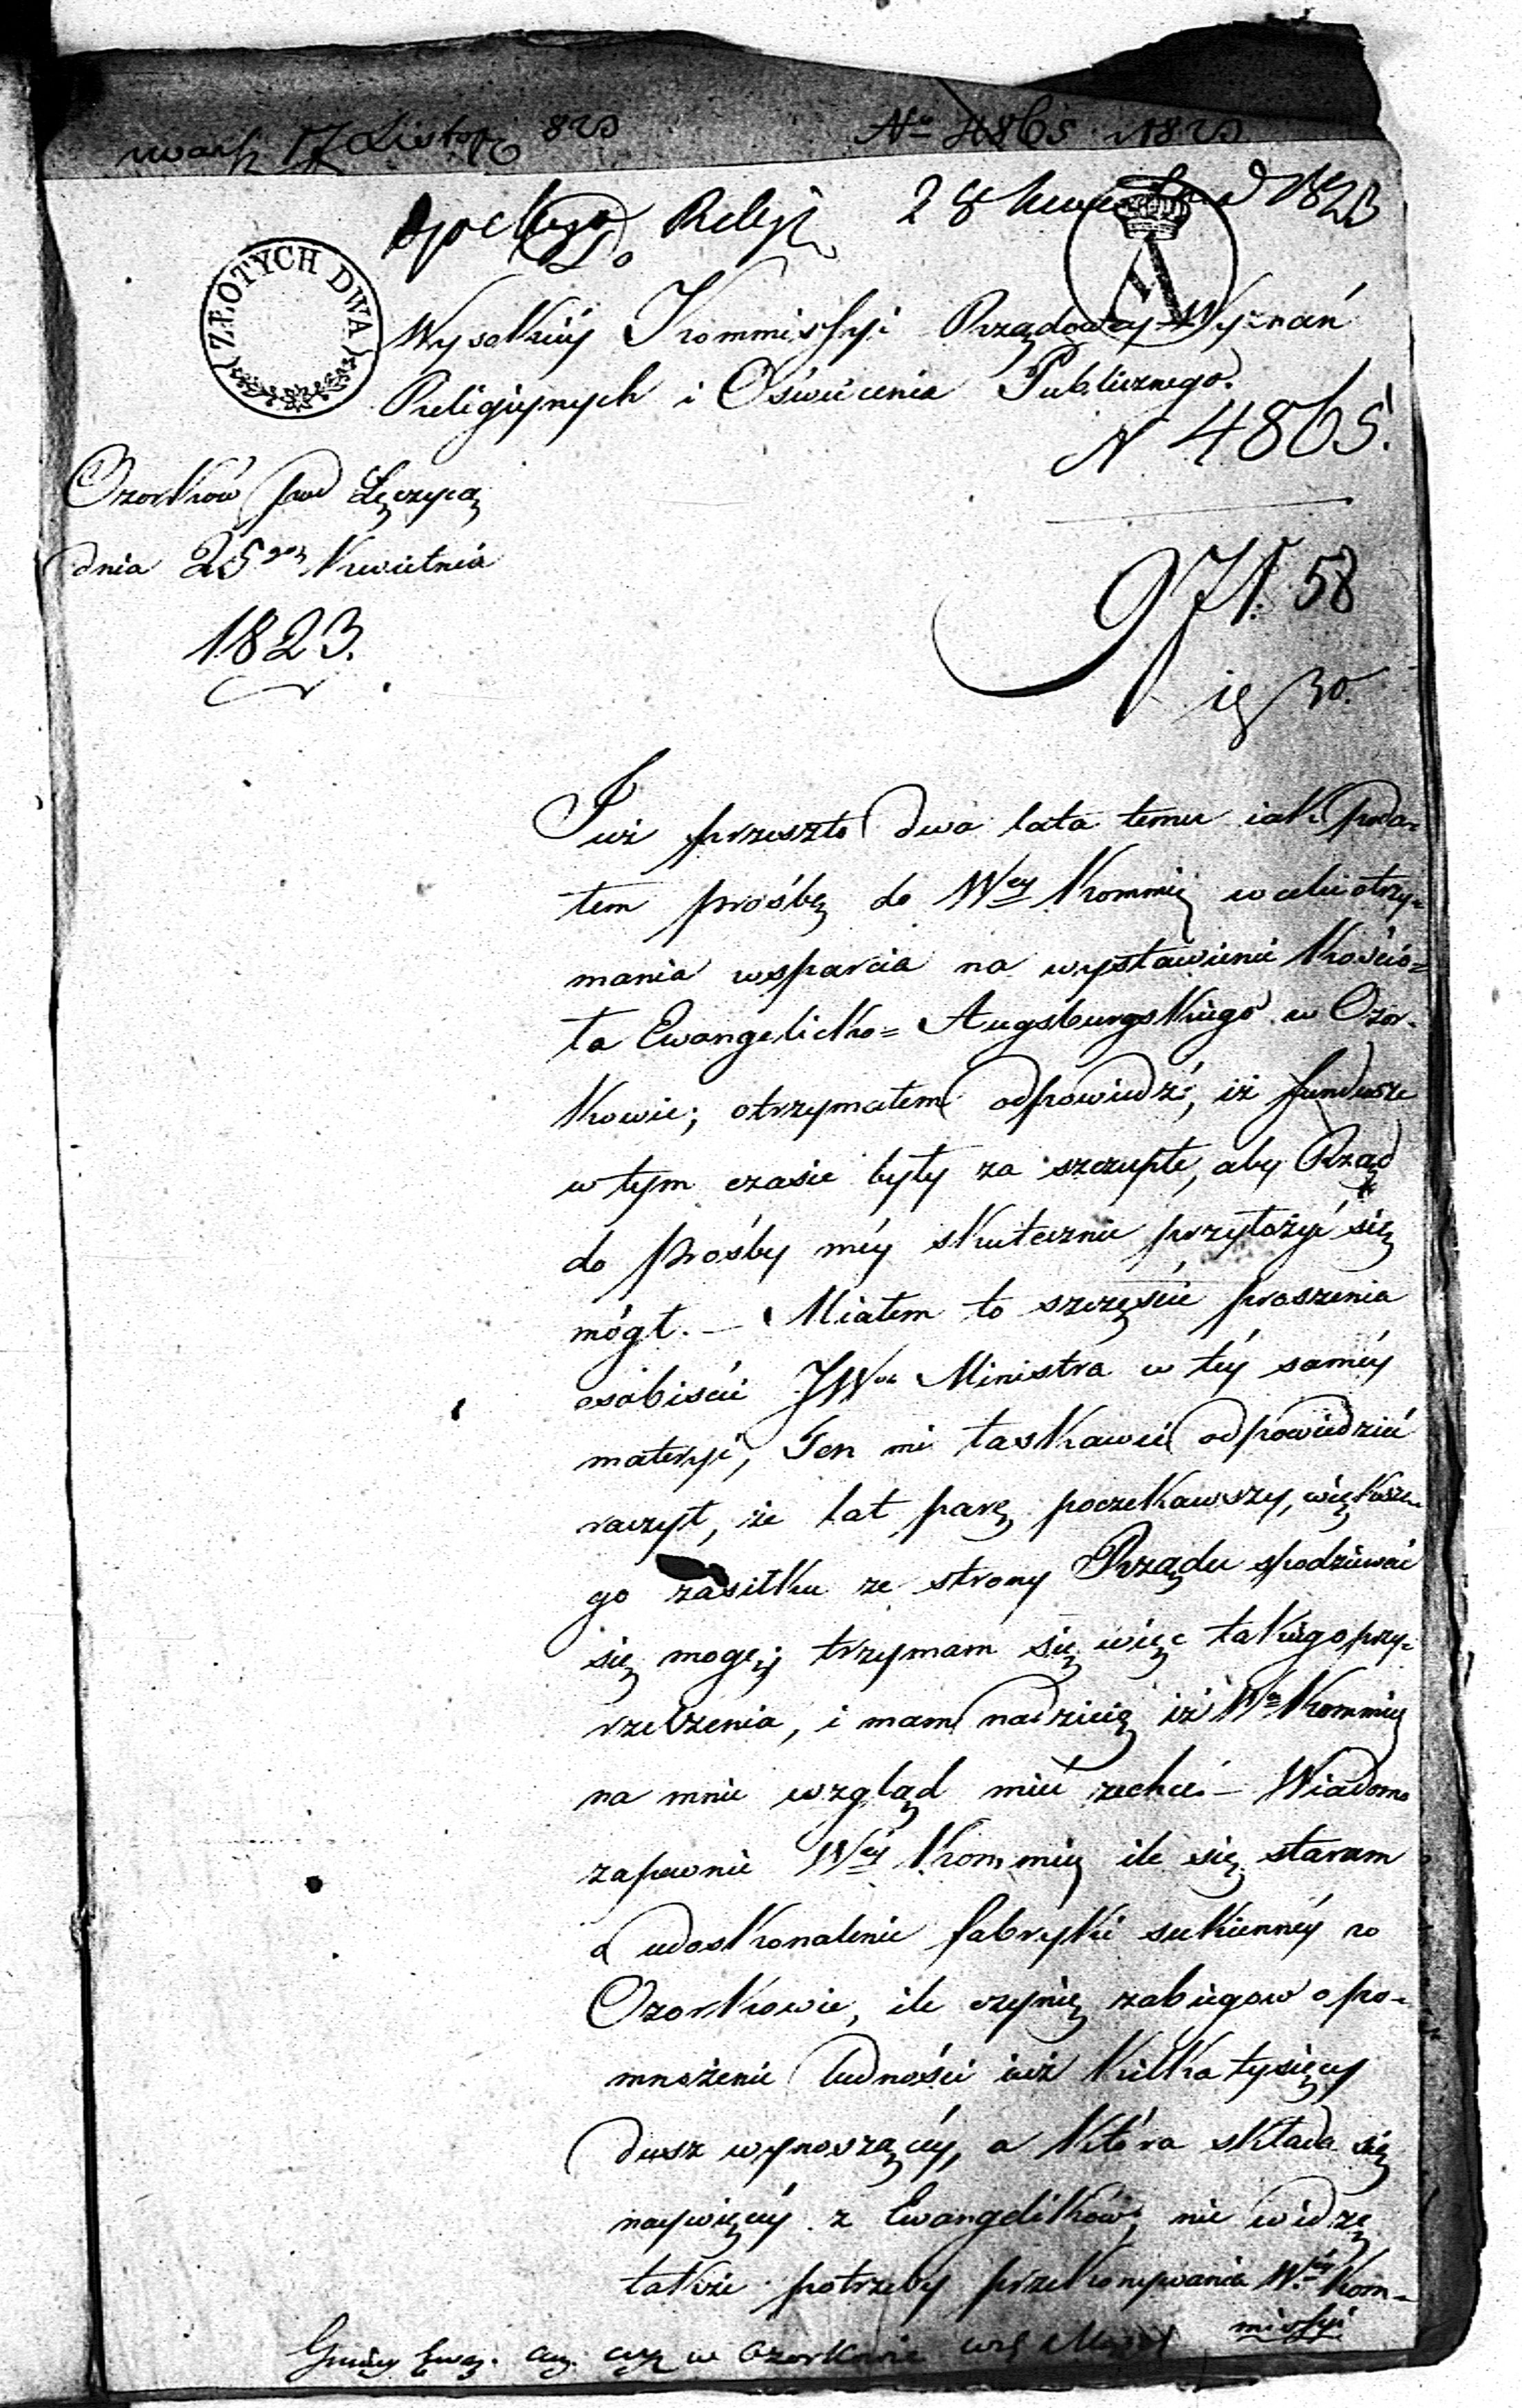 17 Listop 823 No 4865 1823
28 1823
ZŁOTYCH DWA
Do
Wysokiéy Kommissyi Rządowey Wyznań
Religijnych i Oświecenia Publicznego.
N 4865.
Ozorków pod Łęczycą
dnia 25go Kwietnia
1823.
971. 58
30.
Już przeszło dwa lata temu iak poda-
łem prośbę do Wey Kommiſ w celu otrzy-
mania wsparcia na wystawienie Kościo-
ła Ewangelicko= Augsburgskiego w Ozor-
kowie; otrzymałem odpowiedź, iż fundusze
w tym czasie były za szczupłe, aby Rząd
do prośby méy skutecznie przyłożyć się
mógł. — Miałem to szczęście proszenia
osobiście JWo Ministra w téy saméy
materyi, Ten mi łaskawie odpowiedzieć
raczył, że lat parę poczekawszy, większe-
go zasiłku ze strony Rządu spodziewać
się mogę; trzymam się więc takiego przy-
rzeczenia, i mam nadzieię iż Wa Kommiſ
na mnie wzgląd mieć zechce. — Wiadomo
zapewnie Wey Kommiſ ile się staram
o udoskonalenie fabryki sukiennéy w
Ozorkowie, ile czynię zabiegow o po-
mnożenie ludności iuż kilka tysięcy
dusz wynoszącéy, a która składa się
naywięcéy z Ewangelików; nie widzę
także potrzeby przekonywania Wéy Kom-
missyi
Gminy Ewag. aug. w Ozorkowie